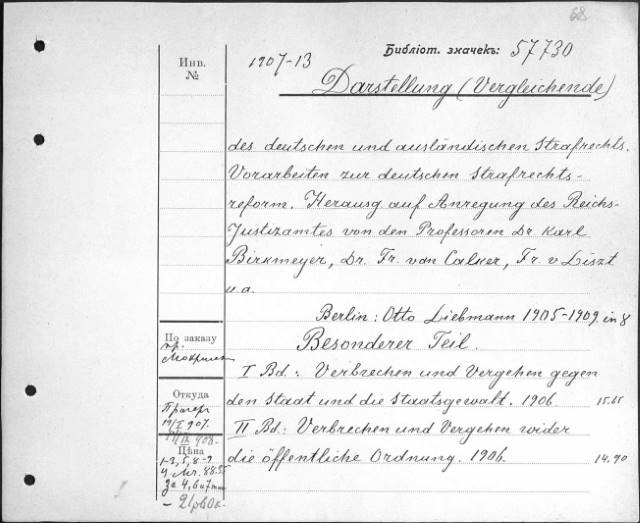 68
Библіот. значекъ: 57730
Инв. №
1907-13
Darstellung (Vergleichende)
des deutschen und ausländischen Strafrechts.
Vorarbeiten zur deutschen Strafrechts-
reform. Herausg auf Anregung des Reichs-
Justizamtes von den Professoren Dr. Karl
Birkmeyer, Dr. Fr. van Calker, Fr. v Liszt
u.a.
Berlin: Otto Liebmann 1905-1909. in 8
По заказу
пр.
Besonderer Teil.
I Bd.: Verbrechen und Vergehen gegen
den Staat und die Staatsgewalt. 1906 15.65
Откуда
Прагер
907.
908.
II Bd.: Verbrechen und Vergehen wider
die öffentliche Ordnung. 1906. 14.90
Цѣна
1-3, 5, 8-9
за 4, 6 и 7